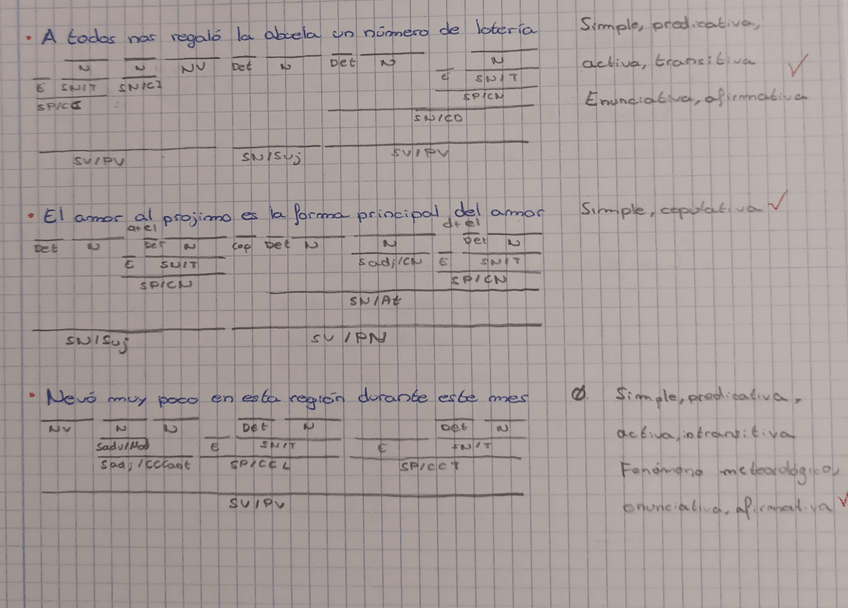 • A todos nos regaló la abuela un número de lotería
Simple, predicativa,
N N NV Det N Det N N
activa, transitiva ✓
E SN/T SN/CI E SN/T
SP/CI SP/CN
Enunciativa, afirmativa
SN/CD
SV/PV SN/Suj SV/PV
• El amor al projimo es la forma principal del amor
Simple, copulativa ✓
a+el d+el
Det N Det N Cop Det N N Det N
E SN/T Sadj/CN E SN/T
SP/CN SP/CN
SN/At
SN/Suj SV/PN
• Nevó muy poco en esta región durante este mes
Ø. Simple, predicativa,
NV N N Det N Det N
activa, intransitiva
Sadv/Mod E SN/T E SN/T
Sadj/CCCant SP/CCL SP/CCT
Fenómeno meteorológico,
SV/PV
enunciativa, afirmativa ✓